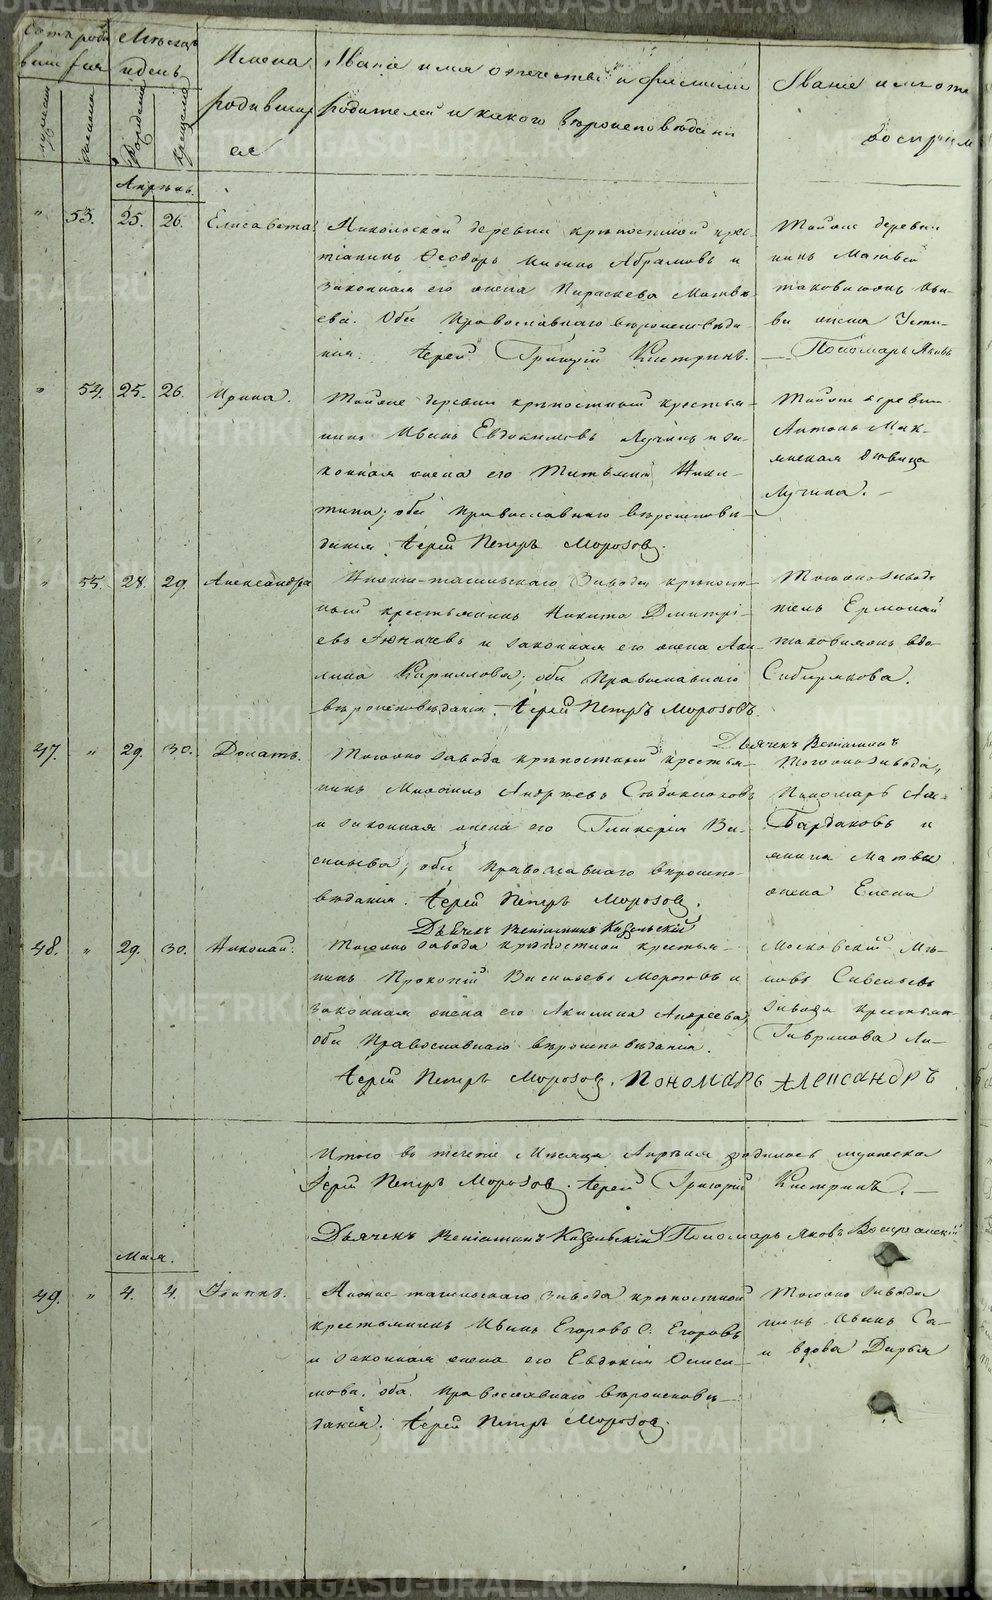 Счетъ роди
вшихся
мужеска
женска
Мѣсяцъ
и день
рожденія
крещенія
Имена
родивших
ся
Званіе имя отечество и фамилія
родителей и какого вѣроисповѣданія
Званіе имя оте
воспріем
Апрѣль.
" 53. 25. 26. Елисавета
Никольской деревни крѣпостной крес-
тіанинъ Ѳеодоръ Абрамовъ и
законная его жена Параскева Матвѣ-
ева. Оба Православнаго вѣроисповѣда-
нія. Іерей Григорій Кистринъ.
Тойже деревни
нинъ Матвей
Пономарь Яковъ
" 54. 25. 26. Ирина.
Тойже деревни крѣпостный крестья-
нинъ Иванъ Евдокимовъ Лучинъ и за-
конная жена его Татьяна Ники-
тина; оба Православнаго вѣроисповѣ-
данія. Іерей Петръ Морозовъ.
Тойже деревни
Антонъ Мак-
дѣвица
Лучина.
" 55. 28. 29. Александра
Нижне-тагильскаго Завода крѣпост-
ный крестьянинъ Никита Дмитрі-
евъ и законная его жена Аку-
лина Кириллова; оба Православнаго
вѣроисповѣданія. Іерей Петръ Морозовъ.
Тогоже завода
Ермолай
Сибирякова.
Дьячекъ Веніаминъ
47. " 29. 30. Донатъ.
Тогоже завода крѣпостный крестья-
нинъ Михаилъ Андреевъ
и законная жена его Гликерія Ва-
сильева; оба Православнаго вѣроиспо-
вѣданія. Іерей Петръ Морозовъ.
Дьячекъ Веніаминъ Казельскій
Тогоже завода,
Пономарь Ал-
Бардаковъ и
Матвѣя
жена Елена
48. " 29. 30. Николай.
Тогоже завода крѣпостной крестья-
нинъ Прокопій Васильевъ Морозовъ и
законная жена его Акилина Андреева,
оба Православнаго вѣроисповѣданія.
Іерей Петръ Морозовъ. Пономарь Александръ
Московскій Мѣ-
Савельевъ
завода крестьян-
Гаврилова
Итого въ теченіе Мѣсяца Апрѣля родилось мужеска
Іерей Петръ Морозовъ. Іерей Григорій Кистринъ.
Дьячекъ Веніаминъ Казельскій Пономарь Яковъ
Мая.
49. " 4. 4. Іоаннъ.
Нижне-тагильскаго завода крѣпостной
крестьянинъ Иванъ Егоровъ Егоровъ
и законная жена его ЕвдокіяОниси-
мова. оба Православнаго вѣроисповѣ-
данія. Іерей Петръ Морозовъ.
Тогоже завода
нинъ Иванъ Са-
и вдова Дарья
METRIKI.GASO-URAL.RU